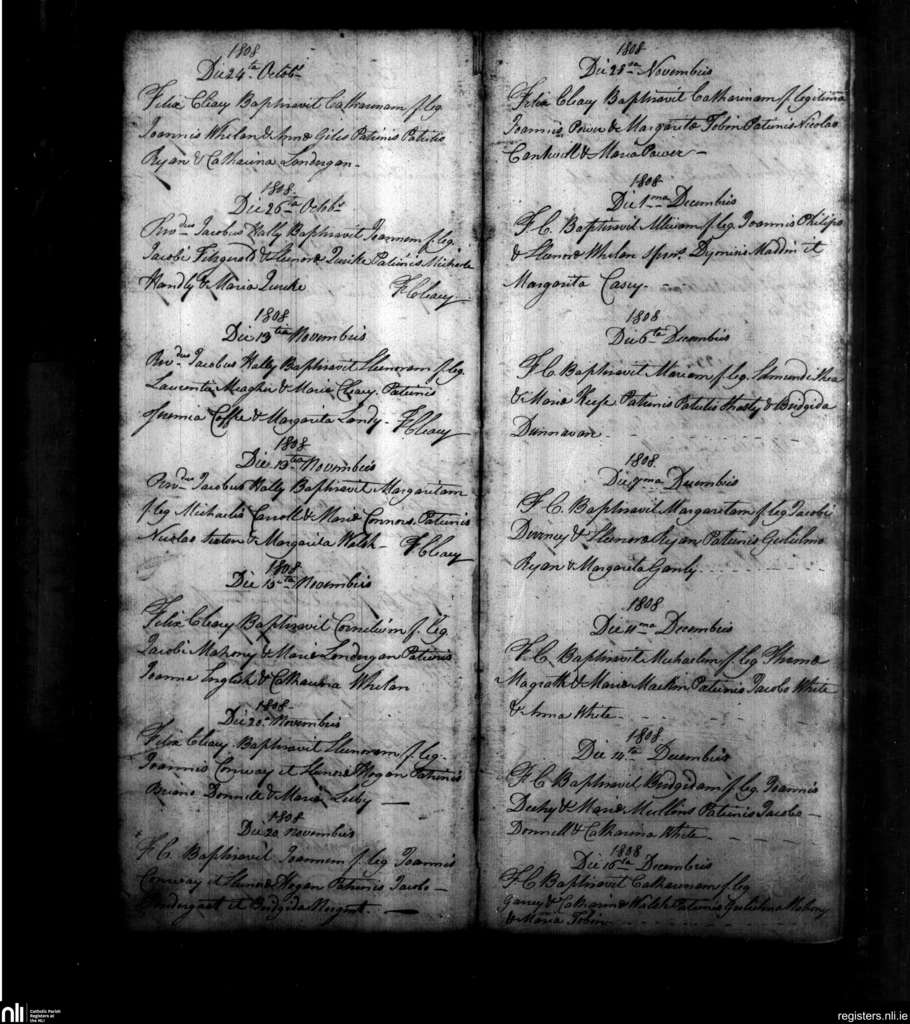 1808
Die 24ta Octobs
Felix Cleary Baptisavit Catharinam f. leg
Joannis Whelan & Annæ Giles Patrinis Patritio
Ryan & Catharina Londergan -
1808
Die 26ta Octobs
Rvdus Jacobus Hally Baptisavit Joannem f. leg.
Jacobi Fitzgerald & Elenoræ Quirke Patrinis Michaele
Handly & Maria Quirke F Cleary
1808
Die 13tia Novembris
Rvdus Jacobus Hally Baptisavit Elenoram f. leg.
Laurentii Meagher & Mariæ Cleary Patrinis
Jeremia Coffee & Margarita Landy - F Cleary
1808
Die 13tia Novembris
Rvdus Jacobus Hally Baptisavit Margaritam
f. leg Michaelis Carroll & Mariæ Connors Patrinis
Nicolao & Margarita Walsh - F Cleary
1808
Die 15ta Novembris
Felix Cleary Baptisavit Cornelium f. leg
Jacobi Mahony & Mariæ Londergan Patrinis
Joanne English & Catharina Whelan
1808
Die 20a Novembris
Felix Cleary Baptisavit Elenoram f. leg.
Joannis Conway et Elenoræ Hogan Patrinis
Briano Donnell & Maria Leeby —
1808
Die 20 Novembris
F. C. Baptisavit Joannem f. leg Joannis
Conway et Elenoræ Hogan Patrinis Jacobo —
Pendergast et Bridgida Nugent. —
1808
Die 28va Novembris
Felix Cleary Baptisavit Catharinam f. legitima
Joannis Power & Margaritæ Tobin Patrinis Nicolao
Cantwell & Maria Power —
1808
Die 1ma Decembris
F. C. Baptisavit f. leg. Joannis Philips
& Elenoræ Whelan Spons. Dyonisio Maddin et
Margarita Casey.
1808
Die 6ta Decembris
F. C. Baptisavit Mariam f. leg. Edmundi Shea
& Mariæ Keefe Patrinis Patritio & Bridgida
Dunnavan
1808
Die 7ma Decembris
F. C. Baptisavit Margaritam f. leg Jacobi
& Elenoræ Ryan Patrinis Gulielmo
Ryan & Margarita Ganly
1808
Die 11ma Decembris
F. C. Baptisavit Michaelem f. leg Thomæ
Magrath & Mariæ Mackin Patrinis Jacobo White
& Anna White
1808
Die 14ta Decembris
F. C Baptisavit Bridgidam f. leg. Joannis
Deehy & Mariæ Mullins Patrinis Jacobo —
Donnell & Catharina White
1808
Die 16ta Decembris
F. C Baptisavit Catharinam f. leg
& Catharinæ Walsh Patrinis Gulielmo Mahony
& Maria Tobin
nli
Catholic Parish
Registers at
the NLI
registers.nli.ie